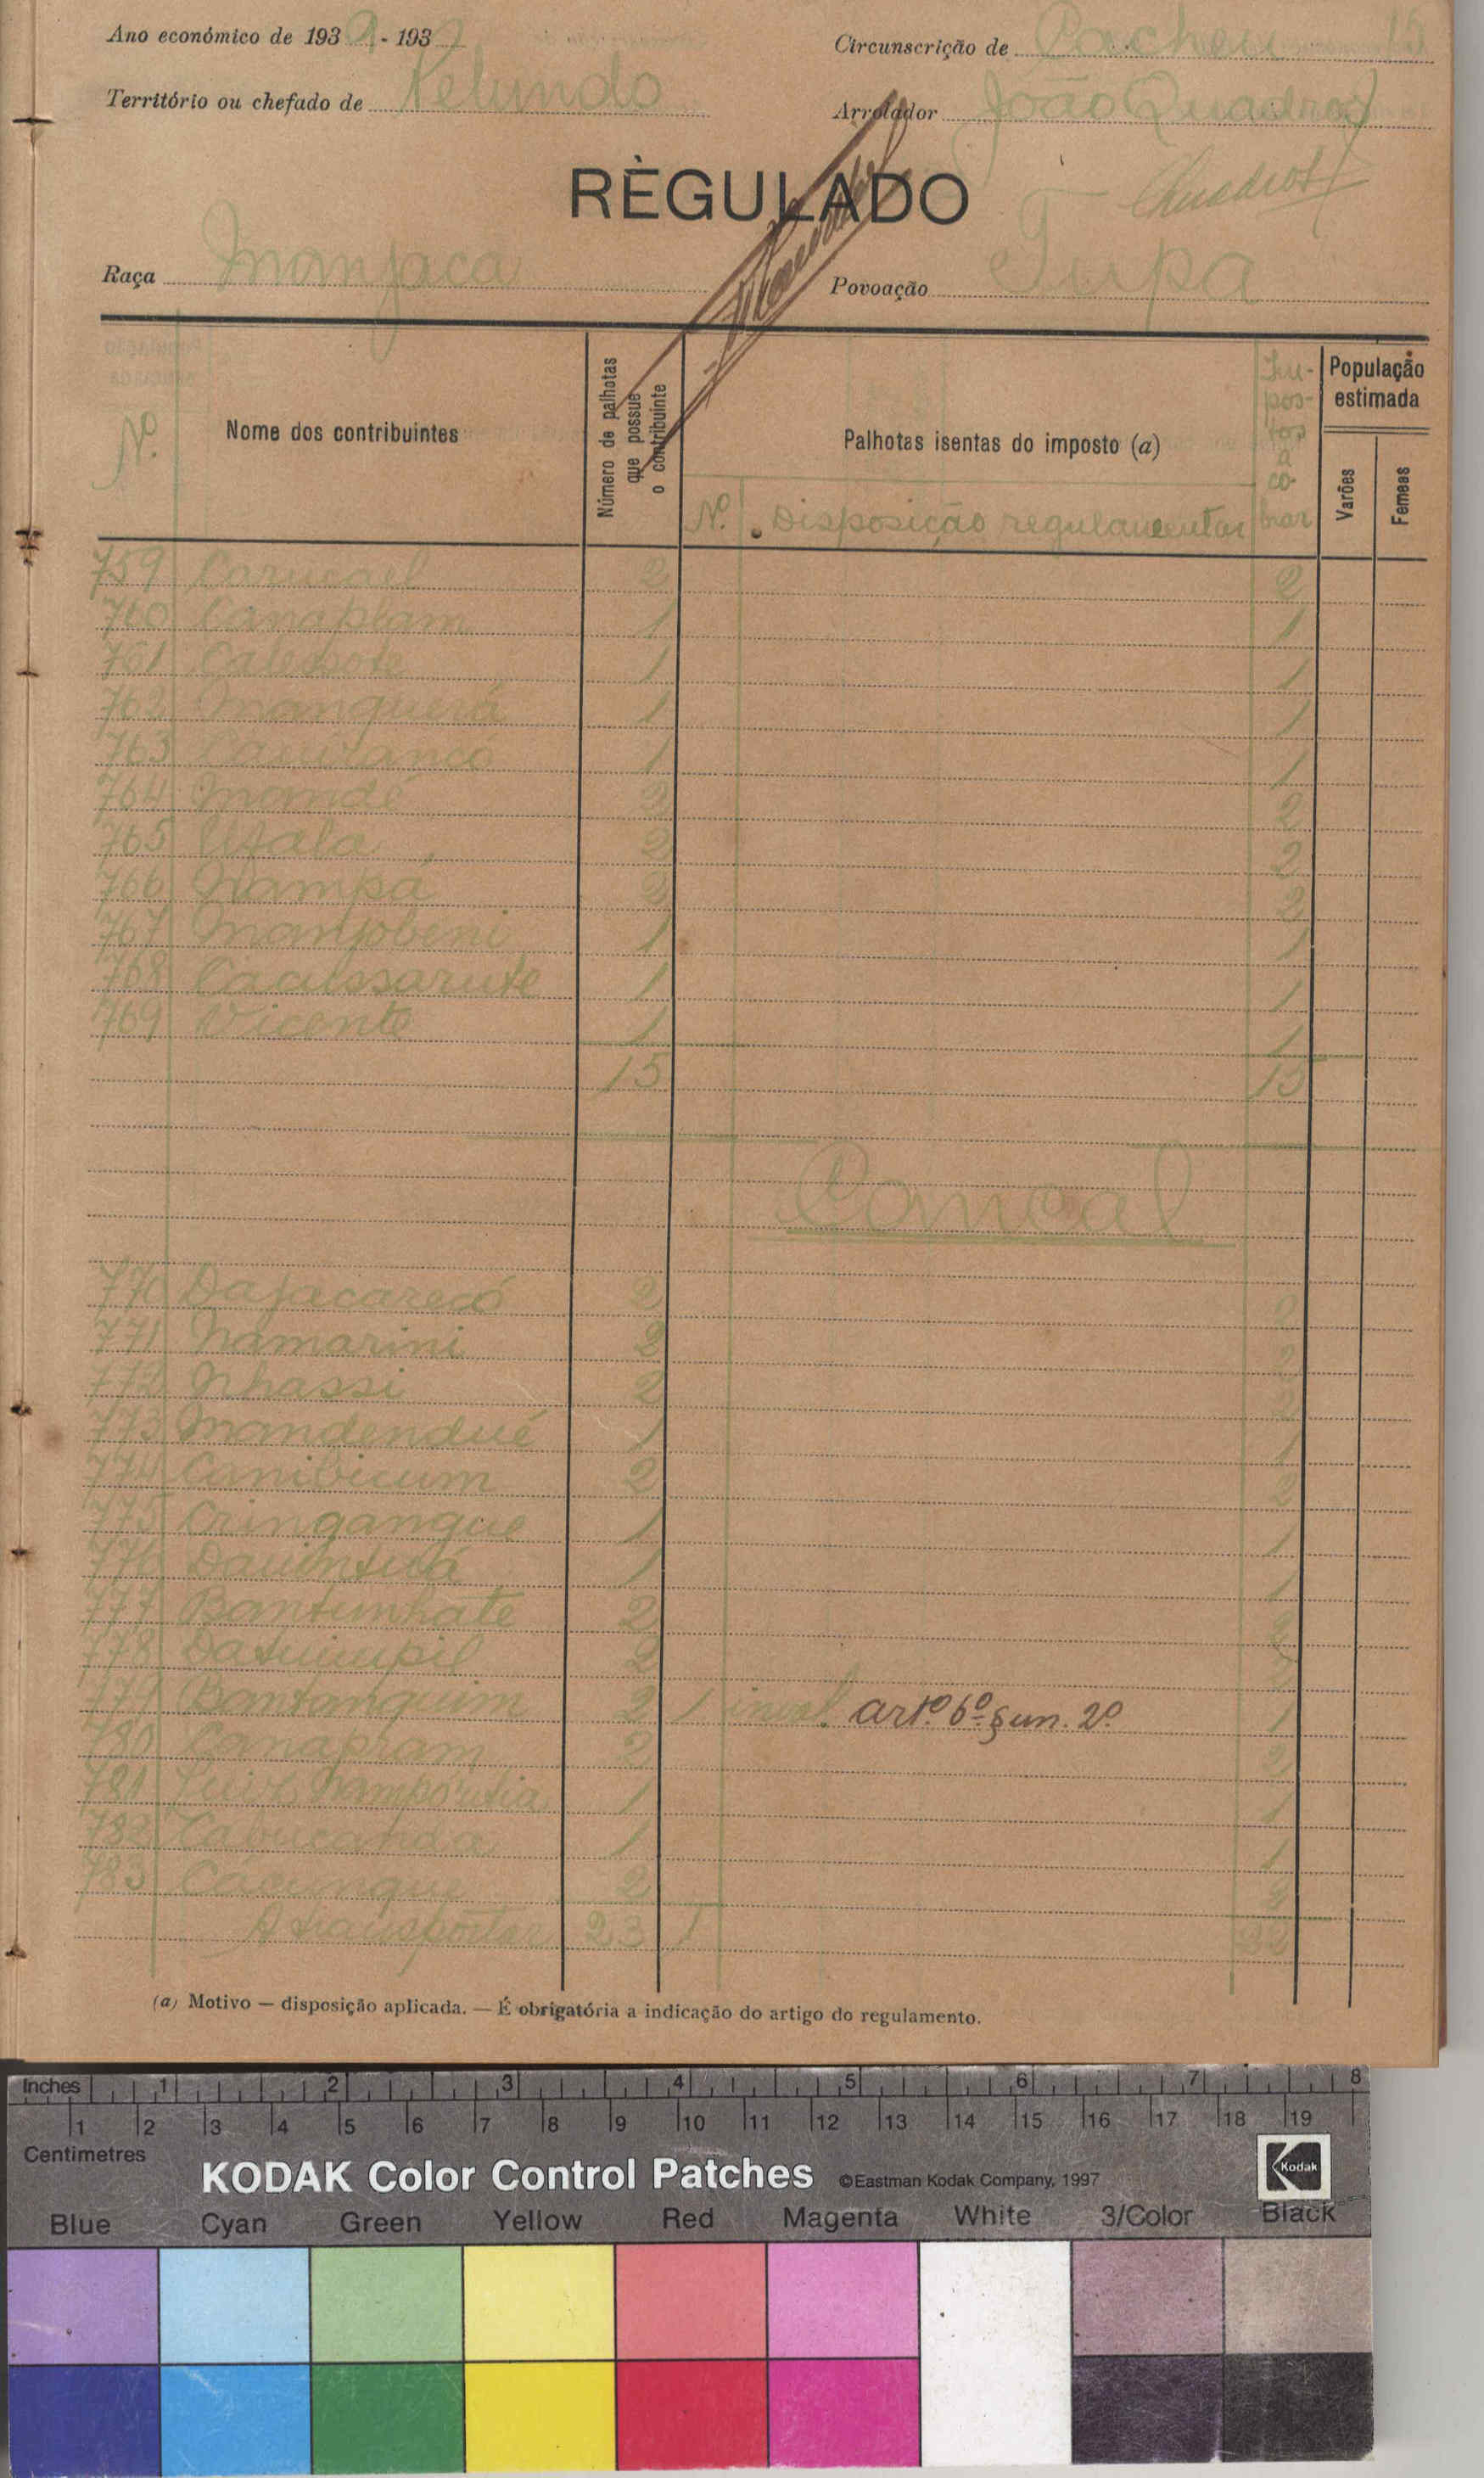 Ano económico de 193 - 193
Circunscrição de Cacheu 15
Território ou chefado de Pelundo
Arrolador João Quadros
RÈGULADO
Quadros
Raça Manjaca
Povoação Tupa
Nº
Nome dos contribuintes
Número de palhotas que possue o contribuinte
Palhotas isentas do imposto (a)
Nº. Disposição regulamentar
Im-
pos-
tos
a
co-
brar
População estimada
Varões
Femeas
759 2 2
760 Canaplam 1 1
761 1 1
762 Manguerá 1 1
763 1 1
764 Mandé 2 2
765 Ufala 2 2
766 Nampá 2 2
767 Manjobeni 1 1
768 Caaussarute 1 1
769 Vicente 1 1
15 15
Camoal
770 Dajacarecó 2 2
771 Namarini 2 2
772 Nhassi 2 2
773 Mandendué 1 1
774 Canibicum 2 2
775 Cringangue 1 1
776 1 1
777 Bantunhate 2 2
778 2 2
779 Bantanquim 2 1 inval. artº. 6º. § un. 2º. 1
780 Canaplam 2 2
781 1 1
782 Cabucanda 1 1
783 Cacungue 2 2
A transportar 23 1 22
(a) Motivo — disposição aplicada. — É obrigatória a indicação do artigo do regulamento.
Inches 1 2 3 4 5 6 7 8
1 2 3 4 5 6 7 8 9 10 11 12 13 14 15 16 17 18 19
Centimetres
KODAK Color Control Patches ©Eastman Kodak Company, 1997 Kodak
Blue Cyan Green Yellow Red Magenta White 3/Color Black